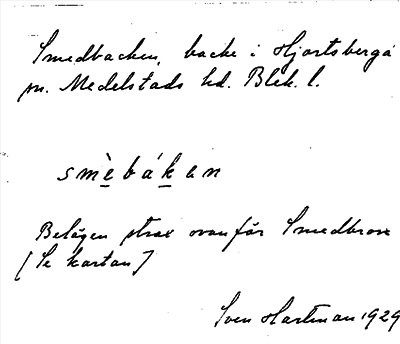 Smedbacken, backe i Hjortsberga
sn. Medelstads hd. Blek. l.
smèbákan
Belägen strax ovanför Smedbron
[Se kartan]
Sven Hartman 1929